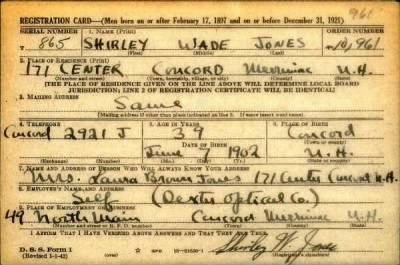 961
REGISTRATION CARD—(Men born on or after February 17, 1897 and on or before December 31, 1921)
SERIAL NUMBER 1. NAME (Print) ORDER NUMBER
T 865 SHIRLEY WADE JONES 10,961
2. PLACE OF RESIDENCE (Print)
171 CENTER CONCORD Merrimac N.H.
(Number and street) (Town, township, village, or city) (County) (State)
[THE PLACE OF RESIDENCE GIVEN ON THE LINE ABOVE WILL DETERMINE LOCAL BOARD
JURISDICTION; LINE 2 OF REGISTRATION CERTIFICATE WILL BE IDENTICAL]
3. MAILING ADDRESS
Same
[Mailing address if other than place indicated on line 2. If same insert word same]
4. TELEPHONE 5. AGE IN YEARS 6. PLACE OF BIRTH
Concord 2921 J 39 Concord
DATE OF BIRTH (Town or county)
June 7 1902 N.H.
(Exchange) (Number) (Mo.) (Day) (Yr.) (State or country)
7. NAME AND ADDRESS OF PERSON WHO WILL ALWAYS KNOW YOUR ADDRESS
Mrs. Laura Brown Jones 171 Center Concord N.H.
8. EMPLOYER'S NAME AND ADDRESS
Self (Dexter Optical Co.)
9. PLACE OF EMPLOYMENT OR BUSINESS
49 North Main Concord Merrimac N.H.
(Number and street or R. F. D. number) (Town) (County) (State)
I AFFIRM THAT I HAVE VERIFIED ABOVE ANSWERS AND THAT THEY ARE TRUE.
D. S. S. Form 1
(Revised 1-1-42) (over) Shirley W. Jones